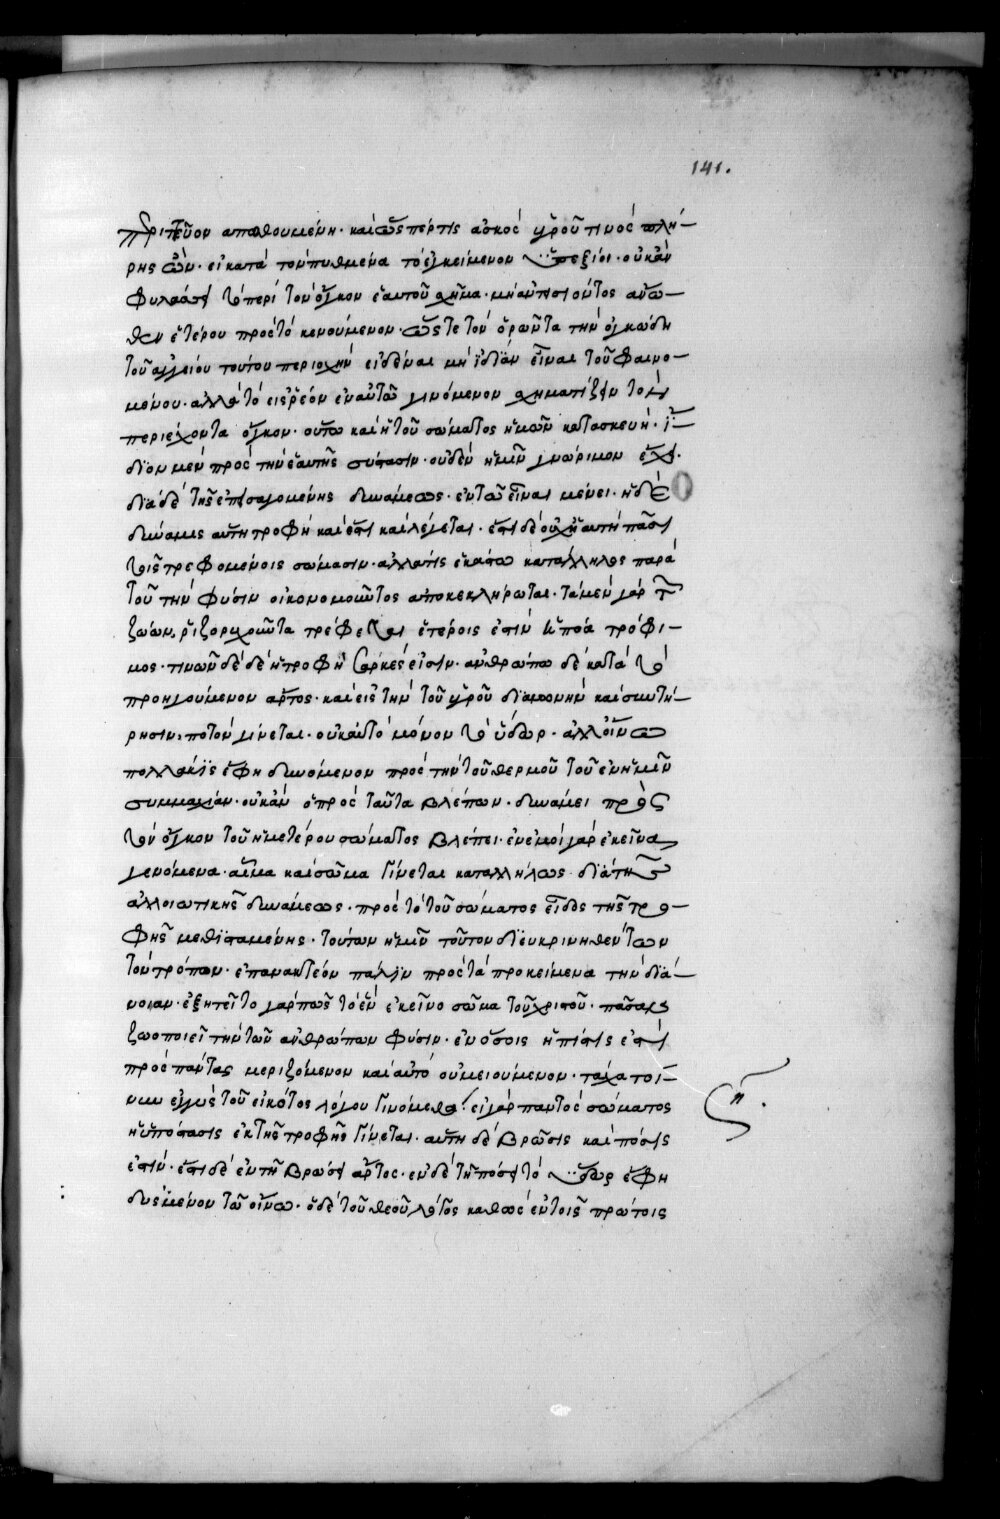 141.
περιττεῦον ἀπωθουμένη· καὶ ὥσπερ τις ἀσκὸς ὑγροῦ τινος πλή-
ρης ὢν· εἰ κατὰ τὸν πυθμένα τὸ ἐγκείμενον ὑπεξίοι· οὐκ ἂν
φυλάσσοι τὸ περὶ τὸν ὄγκον ἑαυτοῦ σχῆμα· μὴ ἀντεισιόντος ἄνω-
θεν ἑτέρου πρὸς τὸ κενούμενον· ὥστε τὸν ὁρῶντα τὴν ὀγκώδη
τοῦ ἀγγείου τούτου περιοχὴν εἰδέναι μὴ ἰδίαν εἶναι τοῦ φαινο-
μένου· ἀλλὰ τὸ εἰσρέον ἐν αὐτῶ γινόμενον σχηματίζειν τὸν
περιέχοντα ὄγκον· οὕτω καὶ ἡ τοῦ σώματος ἡμῶν κατασκευὴ· ἴ-
διον μὲν πρὸς τὴν ἑαυτῆς σύστασιν· οὐδὲν ἡμῖν γνώριμον ἔχει·
διὰ δὲ τῆς ἐπεισαγομένης δυνάμεως· ἐν τῶ εἶναι μένει· ἡ δὲ
δύναμις αὕτη τροφὴ καὶ ἔστι καὶ λέγεται· ἔστι δὲ οὐχ ἡ αὐτὴ πᾶσι
τοῖς τρεφομένοις σώμασιν· ἀλλά τις ἑκάστω κατάλληλος παρὰ
τοῦ τὴν φύσιν οἰκονομοῦντος ἀποκεκλήρωται· τὰ μὲν γὰρ τῶν
ζώων, ῥιζορυχοῦντα τρέφεται ἑτέροις ἐστὶν ἡ πόα τρόφι-
μος· τινῶν δὲ δὲ ἡ τροφὴ σάρκες εἰσὶν· ἀνθρώπω δὲ κατὰ τὸ
προηγούμενον ἄρτος· καὶ εἰς τὴν τοῦ ὑγροῦ διαμονὴν καὶ συντή-
ρησιν, ποτὸν γίνεται· οὐκ αὐτὸ μόνον τὸ ὕδωρ· ἀλλ' οἴνω
πολλάκις ἐφηδυνόμενον πρὸς τὴν τοῦ θερμοῦ τοῦ ἐν ἡμῖν
συμμαχίαν· οὐκοῦν ὁ πρὸς ταῦτα βλέπων· δυνάμει πρὸς
τὸν ὄγκον τοῦ ἡμετέρου σώματος βλέπει· ἐν ἐμοὶ γὰρ ἐκεῖνα
γενόμενα· αἷμα καὶ σῶμα γίνεται καταλλήλως διὰ τῆς
ἀλλοιωτικῆς δυνάμεως· πρὸς τὸ τοῦ σώματος εἶδος τῆς τρο-
φῆς μεθισταμένης· τούτων ἡμῖν τοῦτον διευκρινηθέντων
τὸν τρόπον· ἐπανακτέον πάλιν πρὸς τὰ προκείμενα τὴν διά-
νοιαν· ἐζητεῖτο γὰρ πῶς τὸ ἓν ἐκεῖνο σῶμα τοῦ χριστοῦ· πᾶσαν
ζωοποιεῖ τὴν τῶν ἀνθρώπων φύσιν· ἐν ὅσοις ἡ πίστις ἐστὶ
πρὸς πάντας μεριζόμενον καὶ αὐτὸ οὐ μειούμενον· τάχα τοί-
νυν ἐγγὺς τοῦ εἰκότος λόγου γινόμεθα· εἰ γὰρ παντὸς σώματος
ἡ ὑπόστασις ἐκ τῆς τροφῆς γίνεται· αὕτη δὲ βρῶσις καὶ πόσις
ἐστὶν· ἔστι δὲ ἐν τῆ βρώσει ἄρτος· ἐν δὲ τῆ πόσει τὸ ὕδωρ ἐφη
δυσμένον τῶ οἴνω· ὁ δὲ τοῦ θεοῦ λόγος καθὼς ἐν τοῖς πρώτοις